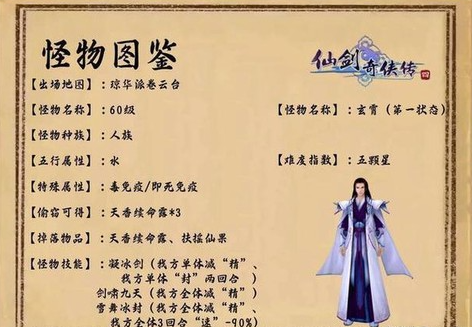 怪物图鉴
仙剑奇侠传 四
【出场地图】：琼华派卷云台
【怪物名称】：60级 【怪物名称】：玄霄（第一状态）
【怪物种族】：人族
【五行属性】：水 【难度指数】：五颗星
【特殊属性】：毒免疫/即死免疫
【偷窃可得】：天香续命露*3
【掉落物品】：天香续命露、扶摇仙果
【怪物技能】：凝冰剑（我方单体减“精”、
我方单体“封”两回合 ）
剑啸九天（我方全体减“精”）
雪舞冰封（我方全体减“精”、
我方全体3回合“速”-90%）